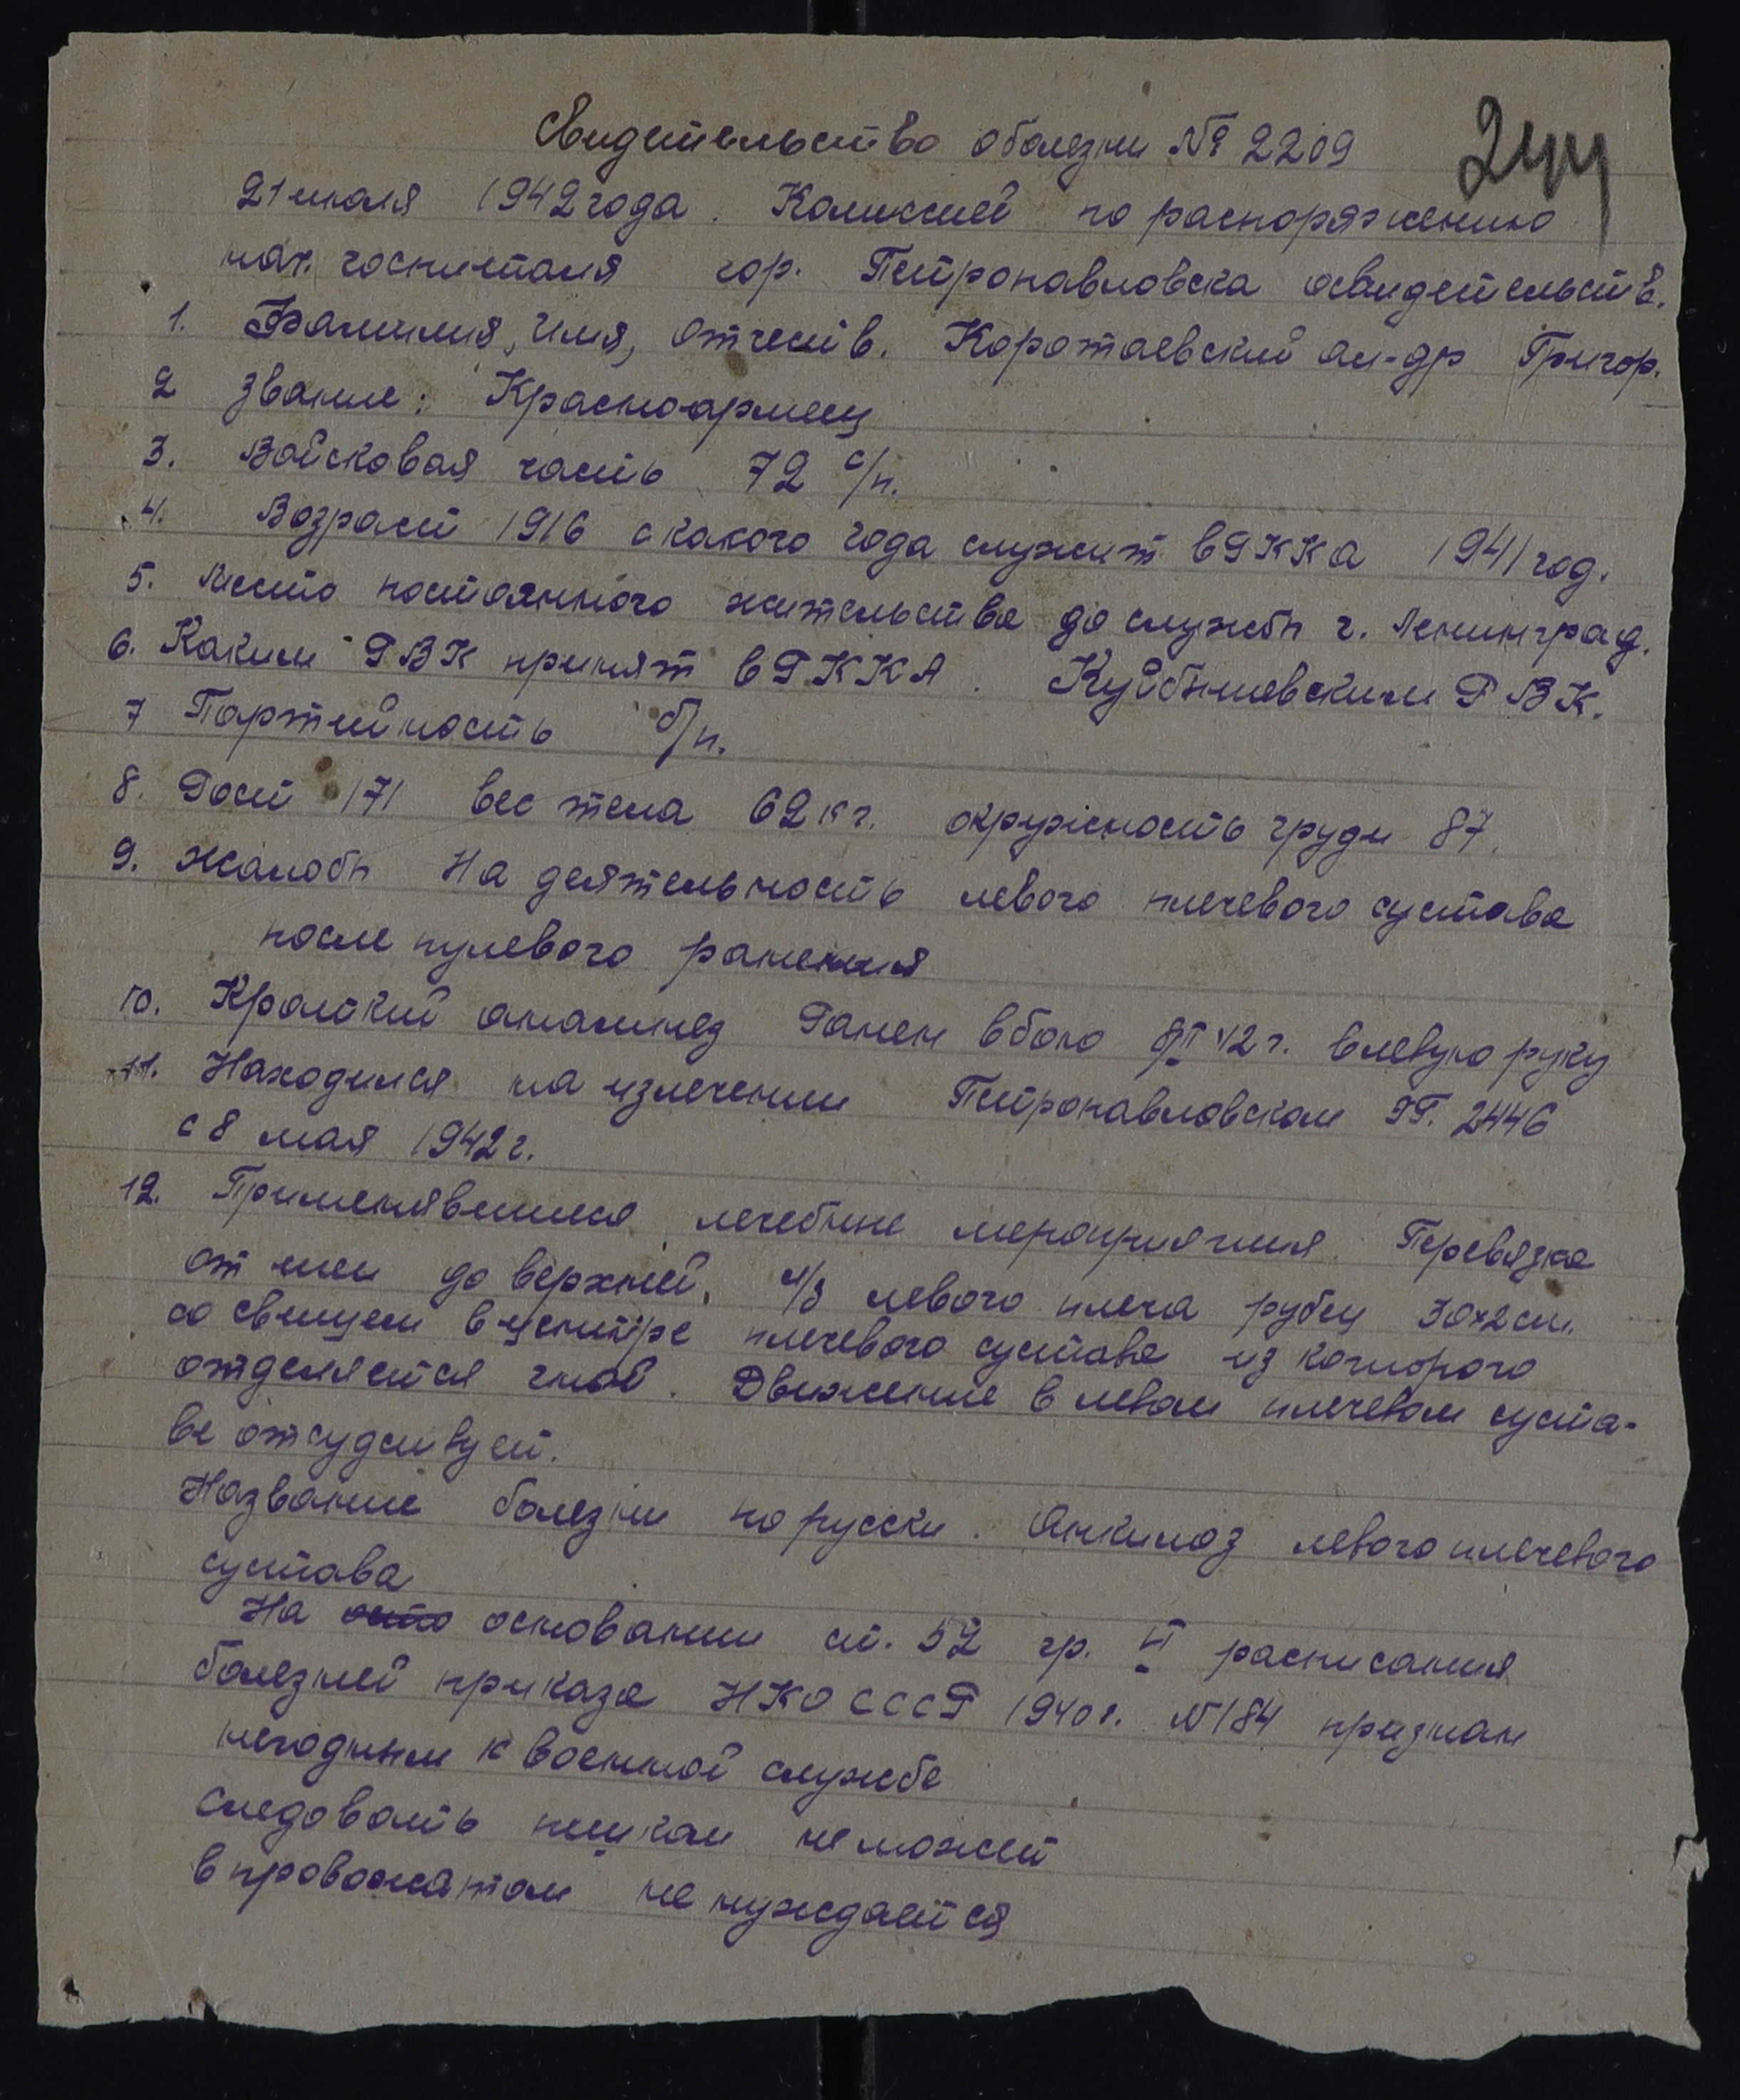 Свидетельство о болезни № 2209
244
21 июля 1942 года. Комиссией по распоряжению
нач. госпиталя гор. Петропавловска освидетельств.
1. Фамилия, Имя, Отчеств. Коротаевский Ал-др Григор.
2 Звание: Красноармеец
3. Войсковая часть 72 с/п.
4. Возраст 1916 с какого года служит в РККА 1941 год.
5. Место постоянного жительства до службы г. Ленинград.
6. Каким РВК принят в РККА. Куйбышевским РВК.
7 Партийность б/п.
8. Рост 171 вес тела 62 кг. окружность груди 87.
9. Жалобы На деятельность левого плечевого сустава
после пулевого ранения
10. Краткий анамнез Ранен в бою 42 г. в левую руку
11. Находился на излечении Петропавловском ЭГ. 2446
с 8 мая 1942 г.
12. Применявшиеся лечебные мероприятия. Перевязка
от шеи до верхней левого плеча рубец 30х2 см.
со свищем в центре плечевого сустава из которого
отделяется гной. Движение в левом плечевом суста-
ве отсудствует.
Название болезни по русски. Анкилоз левого плечевого
сустава
На основании ст. 52 гр. II расписания
болезней приказа НКО СССР 1940 г. № 184 признан
негодным к военной службе
Следовать пешком не может
в провожатом не нуждается